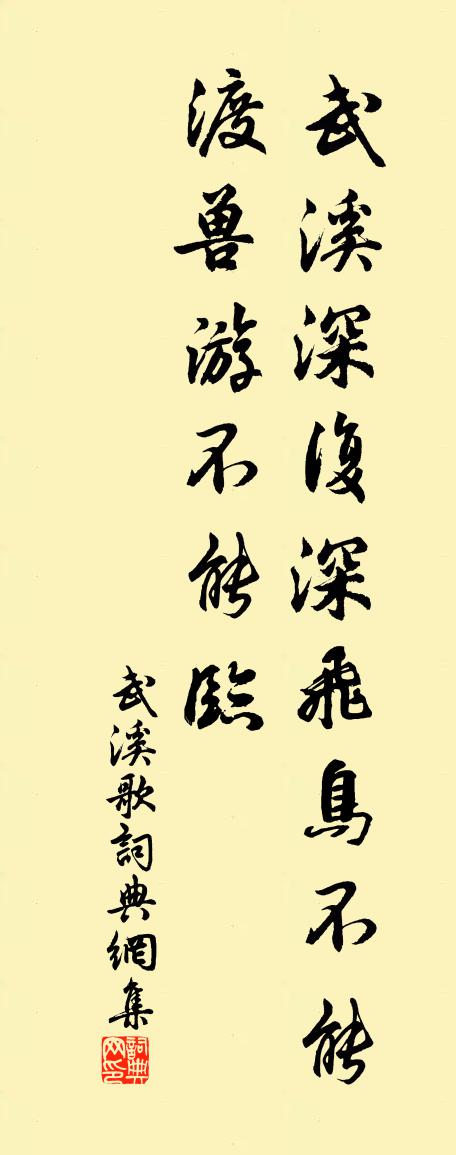 武溪深復深飛鳥不能
渡兽游不能臨
武溪歌詞典網集
詞典网印